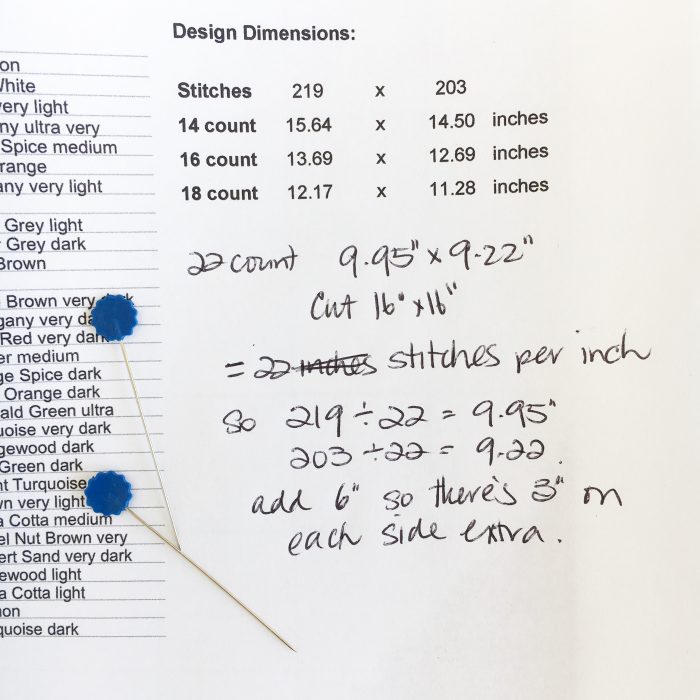 on
White
very light
ny ultra very
Spice medium
range
any very light
Grey light
Grey dark
Brown
Brown very
gany very
Red very dark
er medium
ge Spice dark
Orange dark
ald Green ultra
uoise very dark
gewood dark
Green dark
nt Turquoise
wn very light
a Cotta medium
el Nut Brown very
ert Sand very dark
ewood light
a Cotta light
non
quoise dark
Design Dimensions:
Stitches 219 x 203
14 count 15.64 x 14.50 inches
16 count 13.69 x 12.69 inches
18 count 12.17 x 11.28 inches
22 count 9.95" x 9.22"
Cut 16" x 16"
= 22 inches stitches per inch
so 219 ÷ 22 = 9.95"
203 ÷ 22 = 9.22.
add 6" so there's 3" on
each side extra.